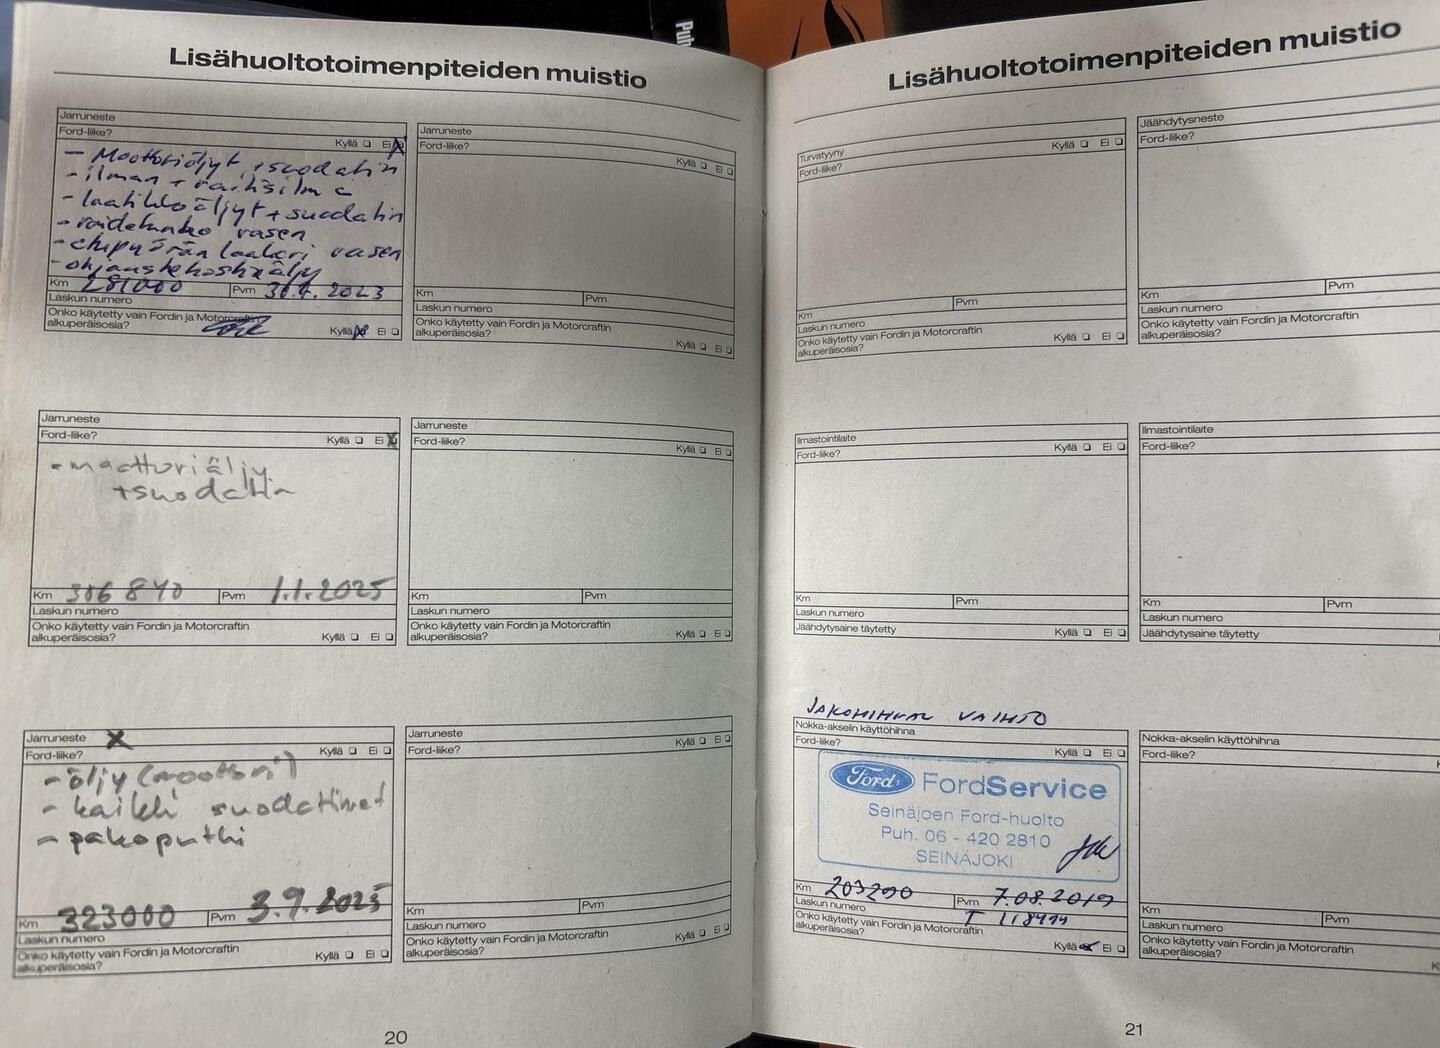 Puh
Lisähuoltotoimenpiteiden muistio
Jarruneste
Ford-liike?
Kyllä ❏ Ei ❏
- Moottoriöljyt + suodatin
- ilman + raitisilma
- laatikkoöljyt + suodatin
- raidetanko vasen
- etupyörän laakeri vasen
- ohjaustehostinöljy
Km 281000 Pvm 30.4.2023
Laskun numero
Onko käytetty vain Fordin ja Motorcraftin
alkuperäisosia? Kyllä ❏ Ei ❏
Jarruneste
Ford-liike?
Kyllä ❏ Ei ❏
Km Pvm
Laskun numero
Onko käytetty vain Fordin ja Motorcraftin
alkuperäisosia? Kyllä ❏ Ei ❏
Jarruneste
Ford-liike?
Kyllä ❏ Ei ❏
- moottoriöljy
+ suodatin
Km 306 840 Pvm 1.1.2025
Laskun numero
Onko käytetty vain Fordin ja Motorcraftin
alkuperäisosia? Kyllä ❏ Ei ❏
Jarruneste
Ford-liike?
Kyllä ❏ Ei ❏
Km Pvm
Laskun numero
Onko käytetty vain Fordin ja Motorcraftin
alkuperäisosia? Kyllä ❏ Ei ❏
Jarruneste X
Ford-liike? Kyllä ❏ Ei ❏
- öljy (moottori)
- kaikki suodattimet
- pakoputki
Km 323000 Pvm 3.9.2025
Laskun numero
Onko käytetty vain Fordin ja Motorcraftin
alkuperäisosia? Kyllä ❏ Ei ❏
Jarruneste
Ford-liike? Kyllä ❏ Ei ❏
Km Pvm
Laskun numero
Onko käytetty vain Fordin ja Motorcraftin
alkuperäisosia? Kyllä ❏ Ei ❏
20
Lisähuoltotoimenpiteiden muistio
Turvatyyny
Ford-liike?
Kyllä ❏ Ei ❏
Km Pvm
Laskun numero
Onko käytetty vain Fordin ja Motorcraftin
alkuperäisosia? Kyllä ❏ Ei ❏
Jäähdytysneste
Ford-liike?
Km Pvm
Laskun numero
Onko käytetty vain Fordin ja Motorcraftin
alkuperäisosia?
Ilmastointilaite
Ford-liike?
Kyllä ❏ Ei ❏
Km Pvm
Laskun numero
Jäähdytysaine täytetty Kyllä ❏ Ei ❏
Ilmastointilaite
Ford-liike?
Km Pvm
Laskun numero
Jäähdytysaine täytetty
JAKOHIHNAN VAIHTO
Nokka-akselin käyttöhihna
Ford-liike? Kyllä ❏ Ei ❏
Ford FordService
Seinäjoen Ford-huolto
Puh. 06 - 420 2810
SEINÄJOKI
Km 203290 Pvm 7.08.2019
Laskun numero
Onko käytetty vain Fordin ja Motorcraftin
alkuperäisosia? Kyllä ❏ Ei ❏
Nokka-akselin käyttöhihna
Ford-liike?
Km Pvm
Laskun numero
Onko käytetty vain Fordin ja Motorcraftin
alkuperäisosia?
21